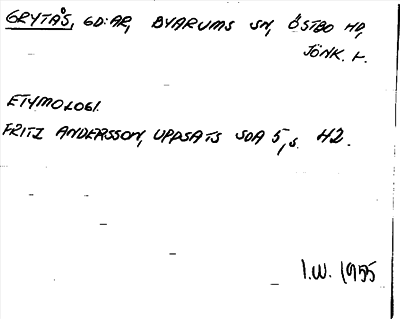 GRYTÅS, GD:AR, BYARUMS SN, ÖSTBO HD,
JÖNK. L.
ETYMOLOGI.
FRITZ ANDERSSON, UPPSATS SOA 5, s. 42.
I.W. 1955